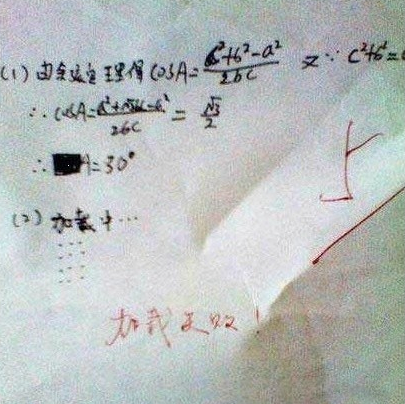 (1) 由余弦定理得 cosA = (c²+b²-a²)/2bc 又∵ c²+b²=
∴ cosA = (a²+√3bc-a²)/2bc = √3/2
∴ A=30°
(2) 加载中…
加载失败!